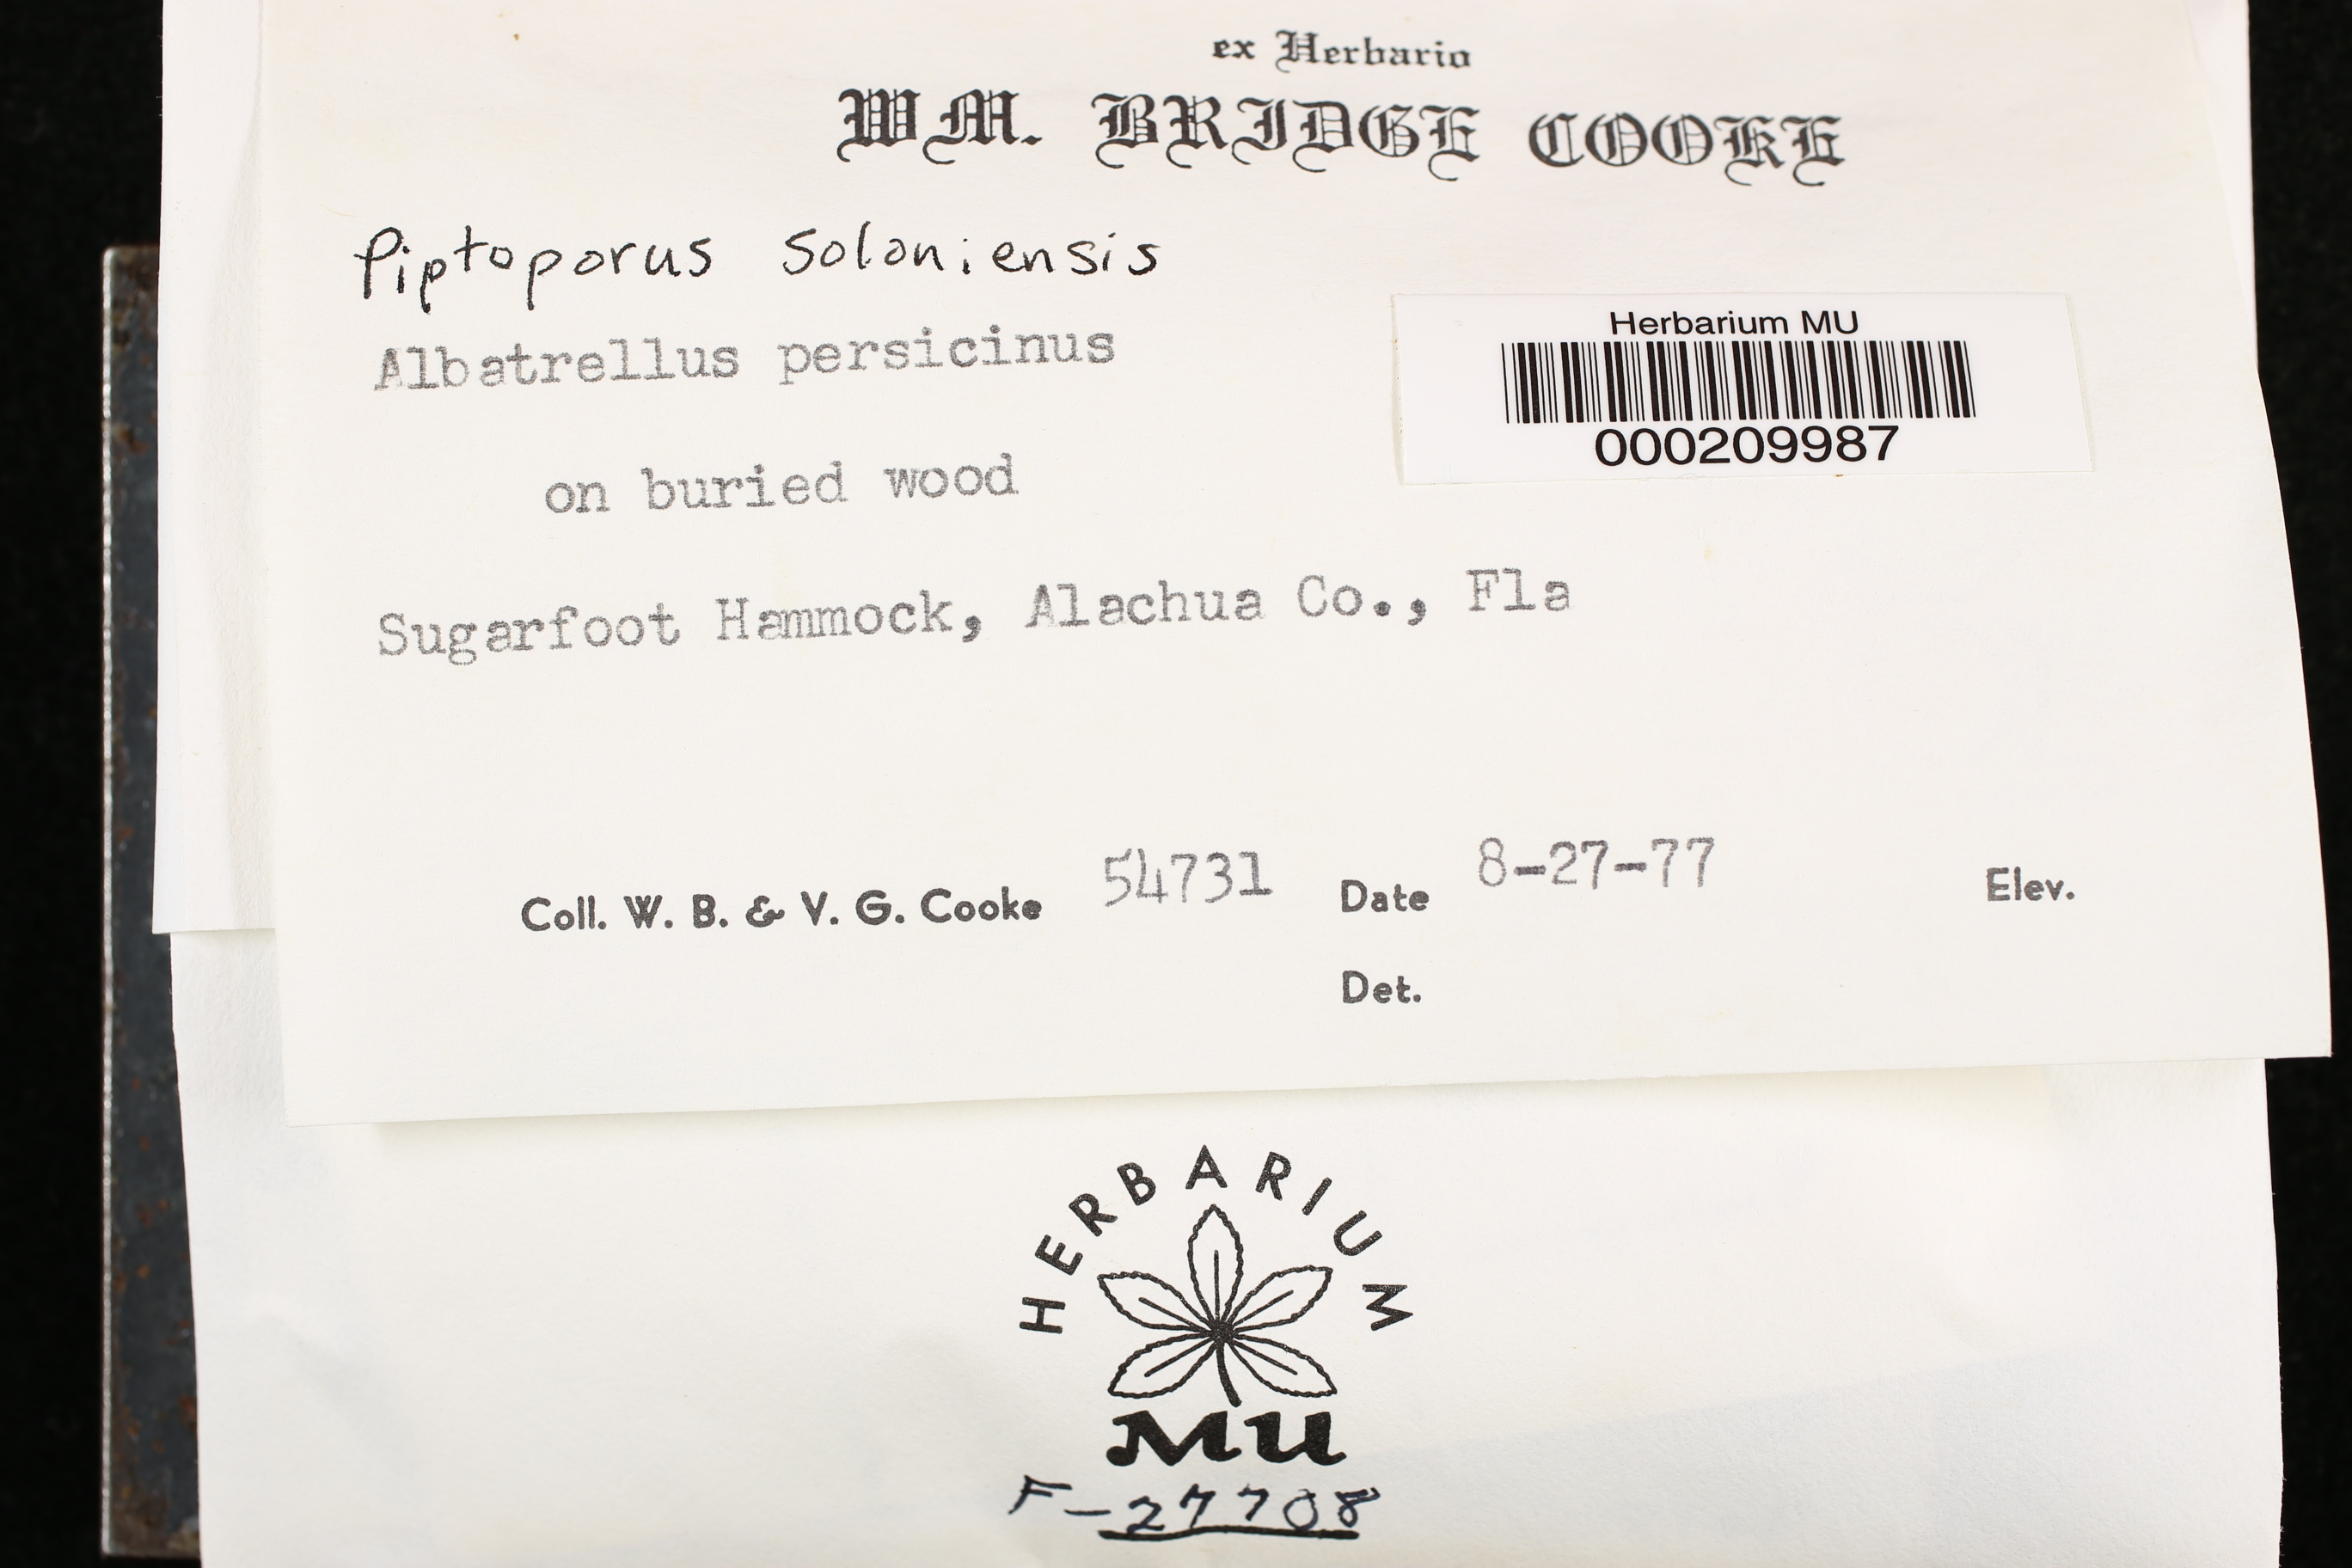 ex Herbario
WM. BRIDGE COOKE
Piptoporus soloniensis
Albatrellus persicinus
Herbarium MU
000209987
on buried wood
Sugarfoot Hammock, Alachua Co., Fla
Coll. W. B. & V. G. Cooke 54731 Date 8-27-77 Elev.
Det.
HERBARIUM
MU
F-27708